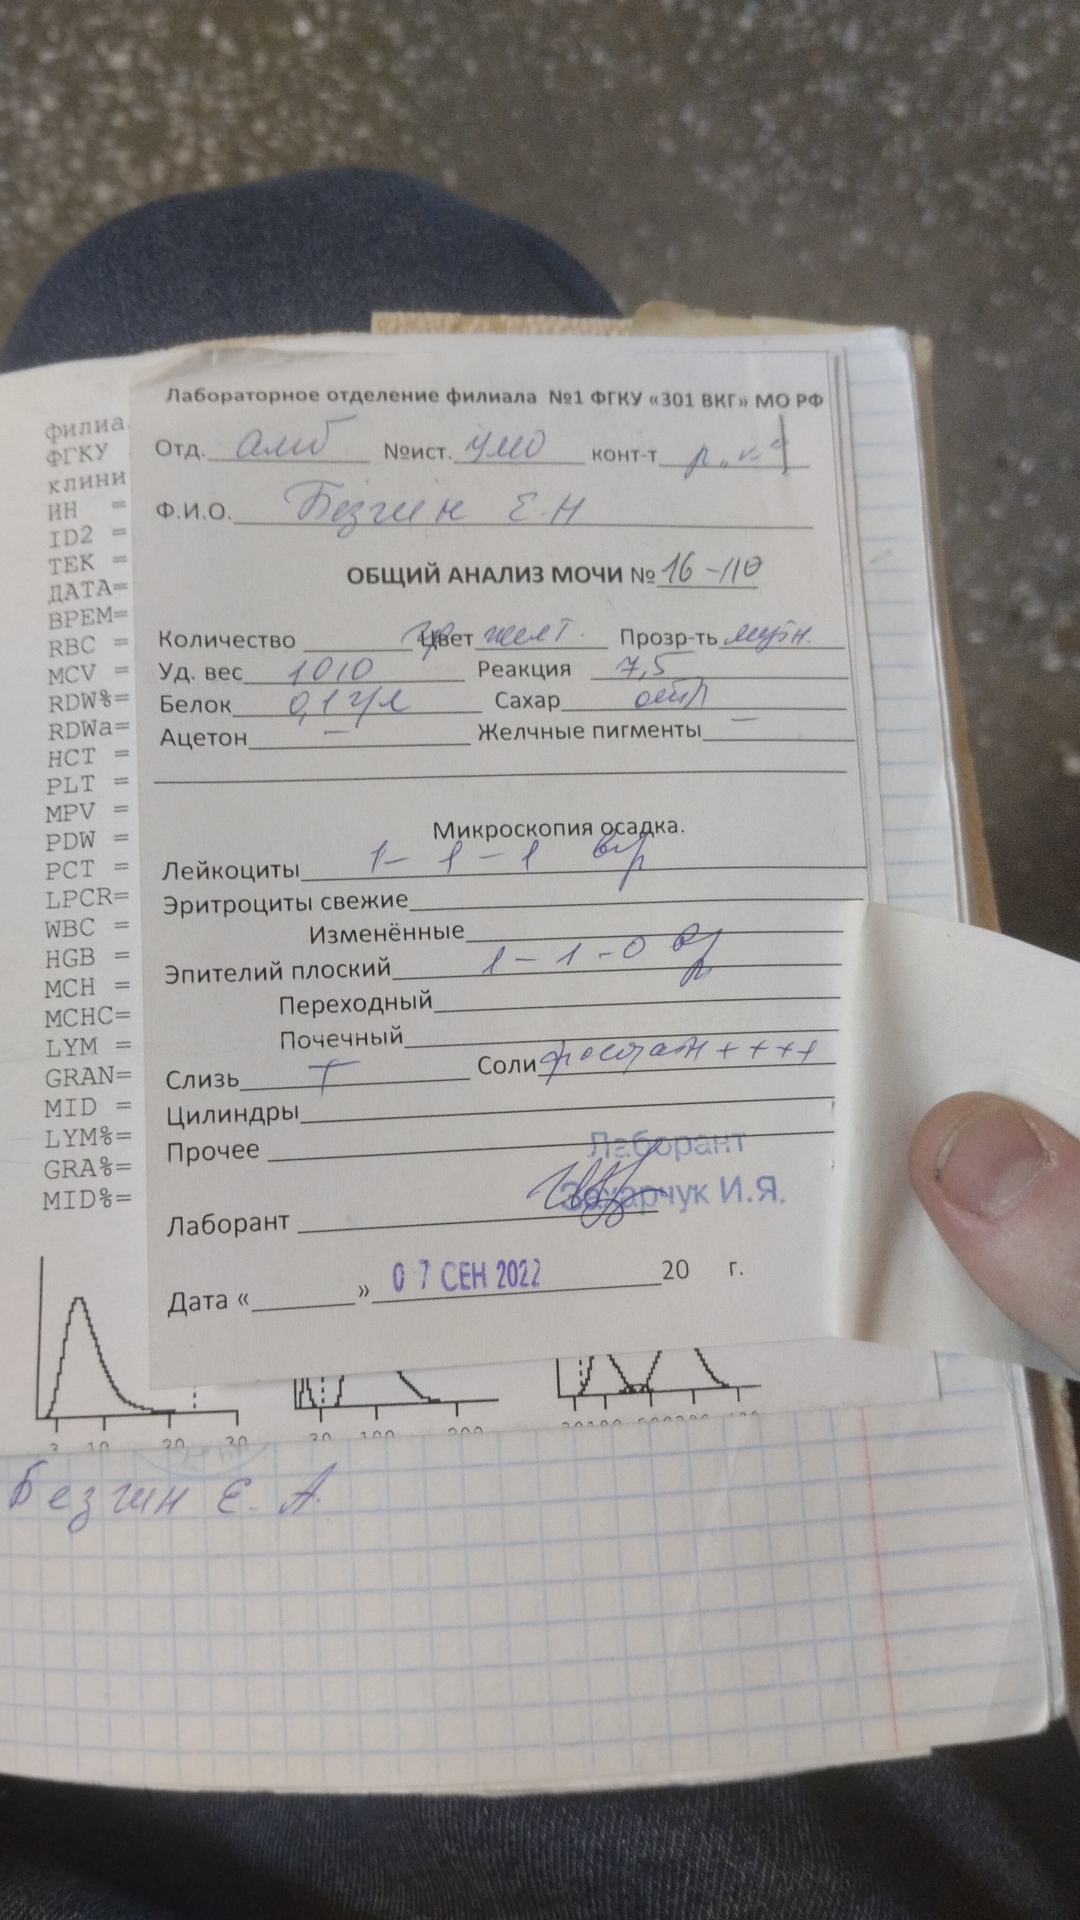 Лабораторное отделение филиала №1 ФГКУ «301 ВКГ» МО РФ
Отд. амб №ист. умо конт-т р„к“
Ф.И.О. Безгин Е.Н
ОБЩИЙ АНАЛИЗ МОЧИ № 16-110
Количество Цвет желт. Прозр-ть мутн.
Уд. вес 1010 Реакция 7,5
Белок 0,1 г/л Сахар отр
Ацетон — Желчные пигменты —
Микроскопия осадка.
Лейкоциты 1-1-1 в/р
Эритроциты свежие
Изменённые
Эпителий плоский 1-1-0 в/р
Переходный
Почечный
Слизь + Соли фосфаты ++++
Цилиндры
Прочее
Лаборант
Захарчук И.Я.
Лаборант
Дата « » 07 СЕН 2022 20 г.
филиа
ФГКУ
клини
ИН =
ID2 =
ТЕК =
ДАТА=
ВРЕМ=
RBC =
MCV =
RDW%=
RDWa=
HCT =
PLT =
MPV =
PDW =
PCT =
LPCR=
WBC =
HGB =
MCH =
MCHC=
LYM =
GRAN=
MID =
LYM%=
GRA%=
MID%=
3 10 20 30
30 100 200
Безгин Е. А.